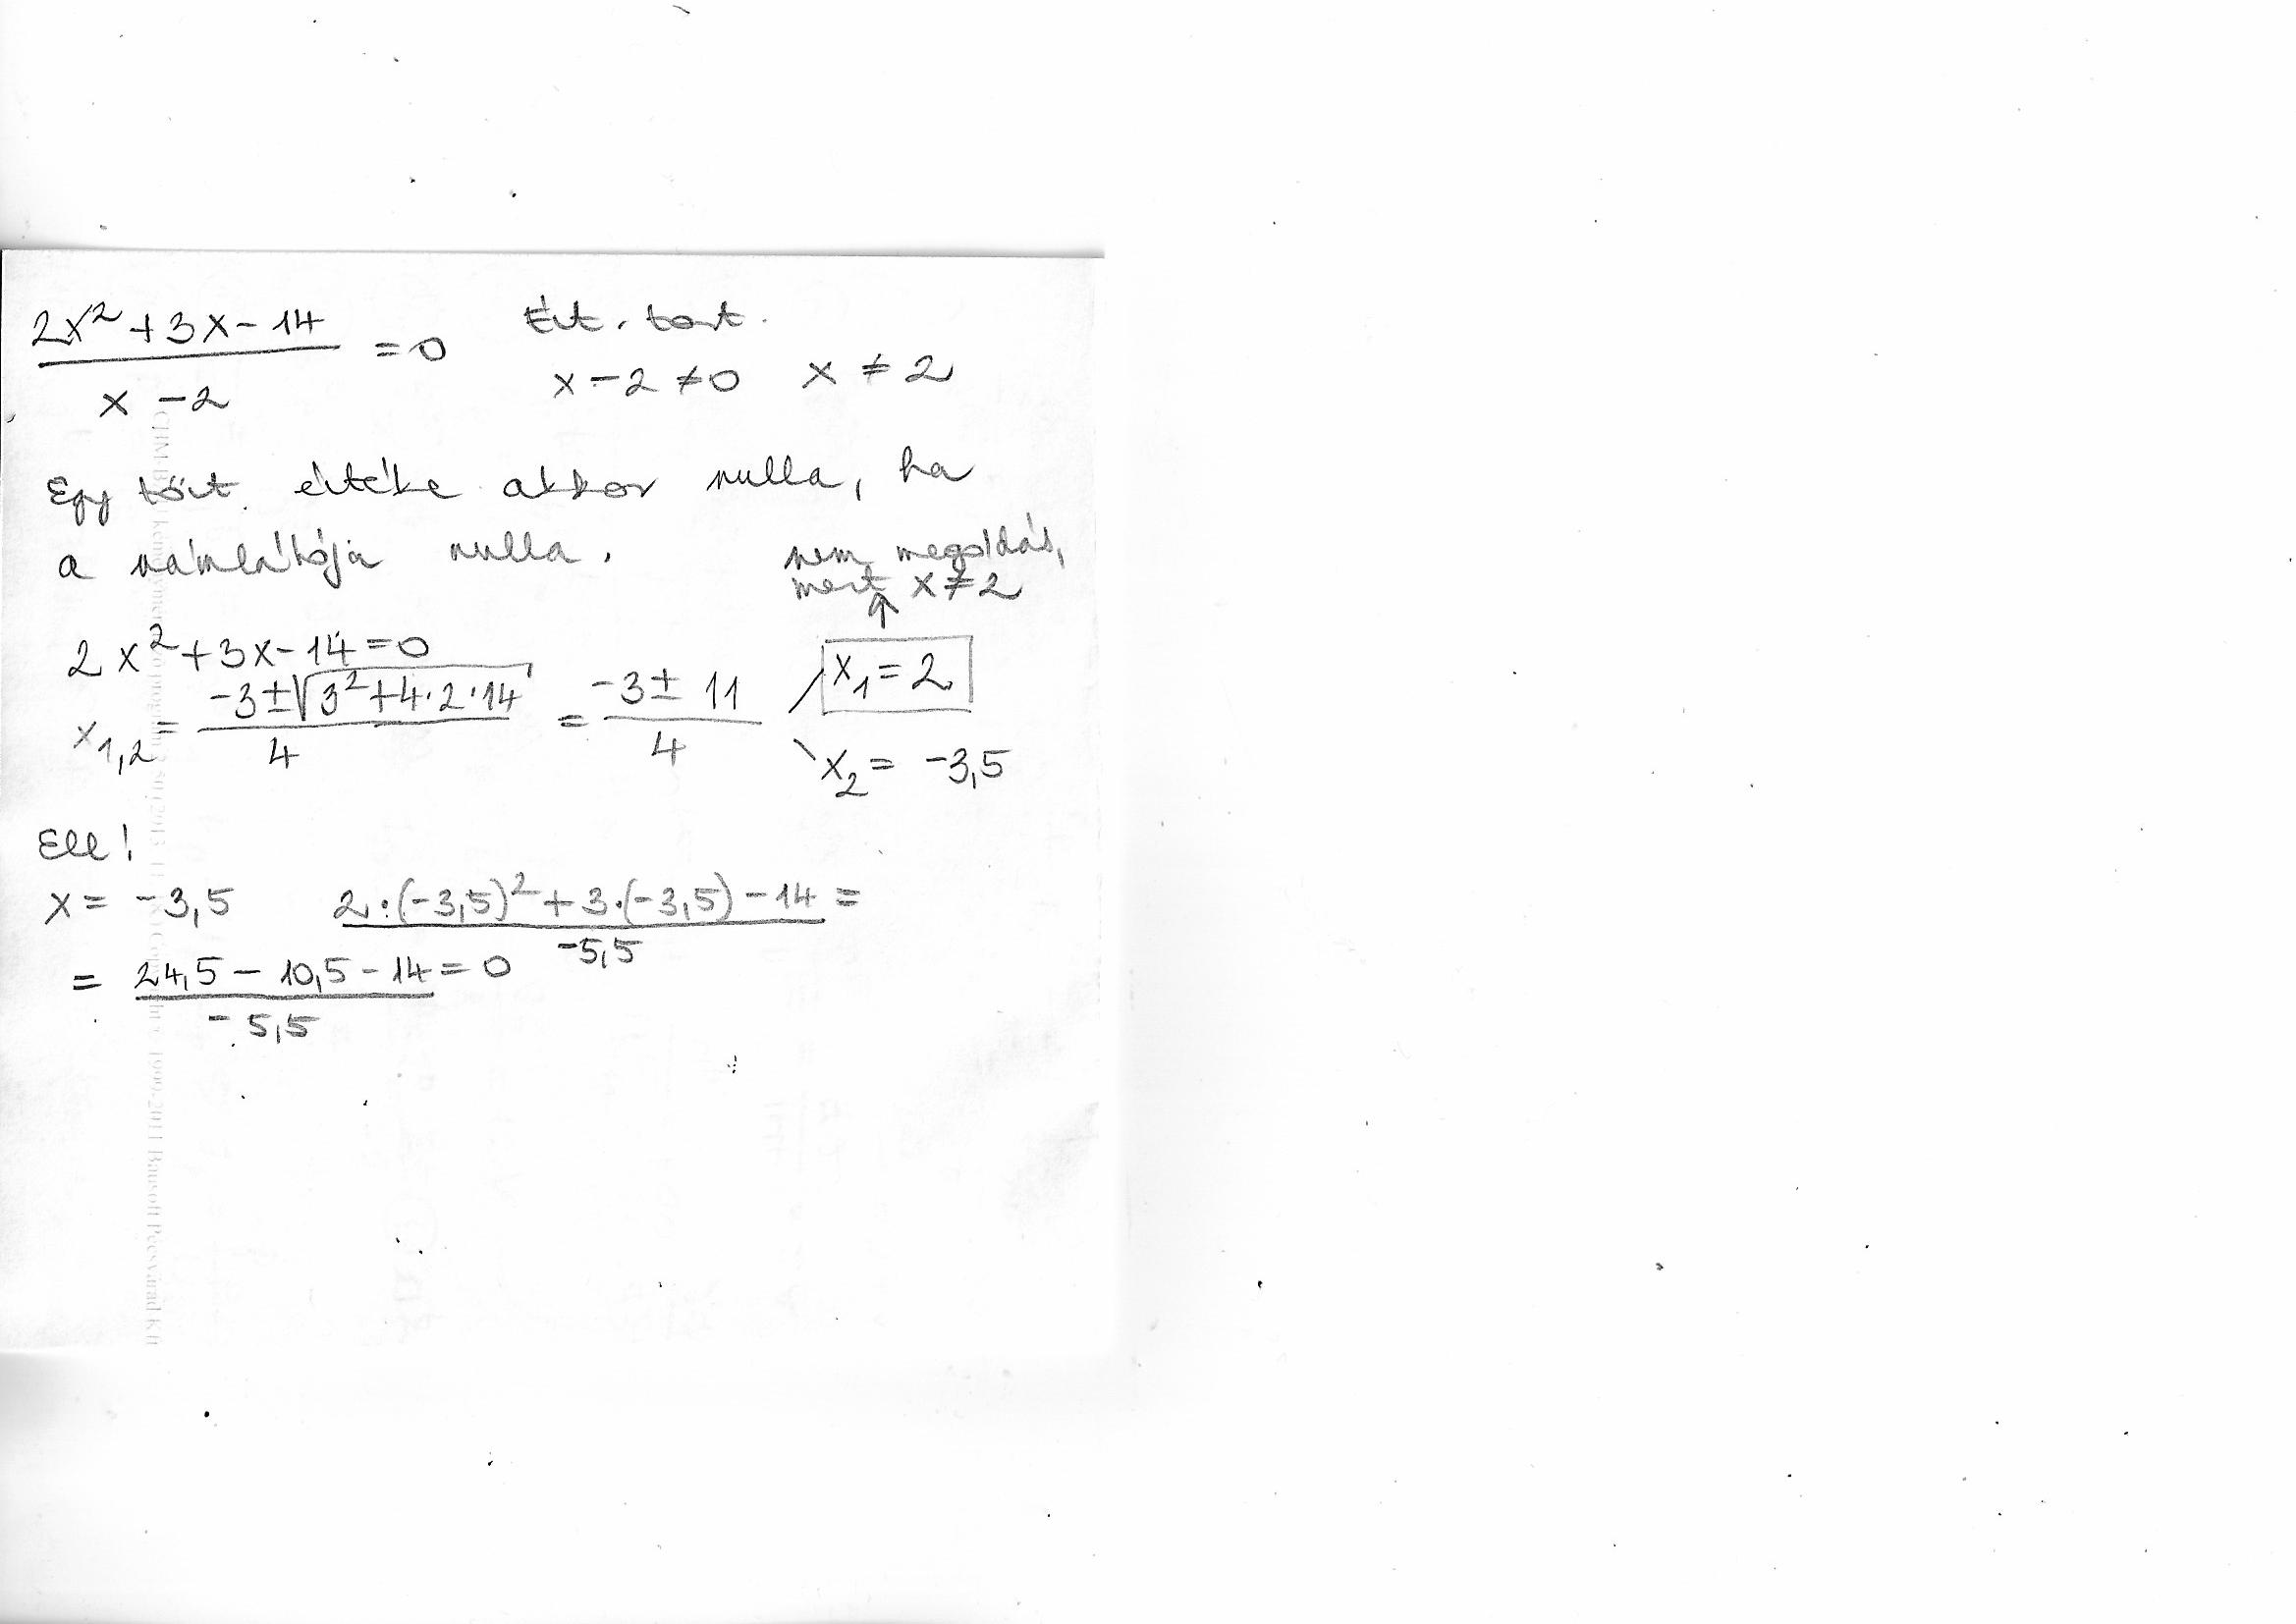 (2x²+3x-14)/(x-2) = 0 Ért. tart.
x-2≠0 x≠2
Egy tört értéke akkor nulla, ha
a számlálója nulla.
nem megoldás,
mert x≠2
↑
2x²+3x-14=0
x₁,₂ = (-3±√(3²+4·2·14))/4 = (-3±11)/4
x₁=2
x₂= -3,5
Ell!
x= -3,5 (2·(-3,5)²+3·(-3,5)-14)/(-5,5) =
= (24,5-10,5-14)/(-5,5) = 0